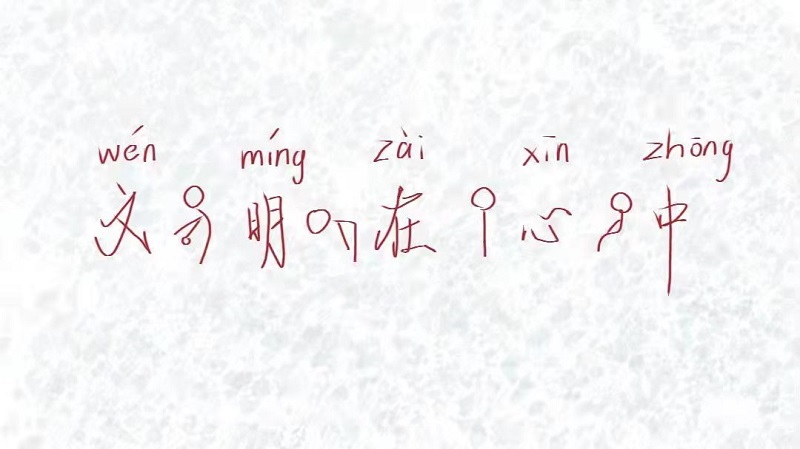 wén míng zài xīn zhōng
文明在心中